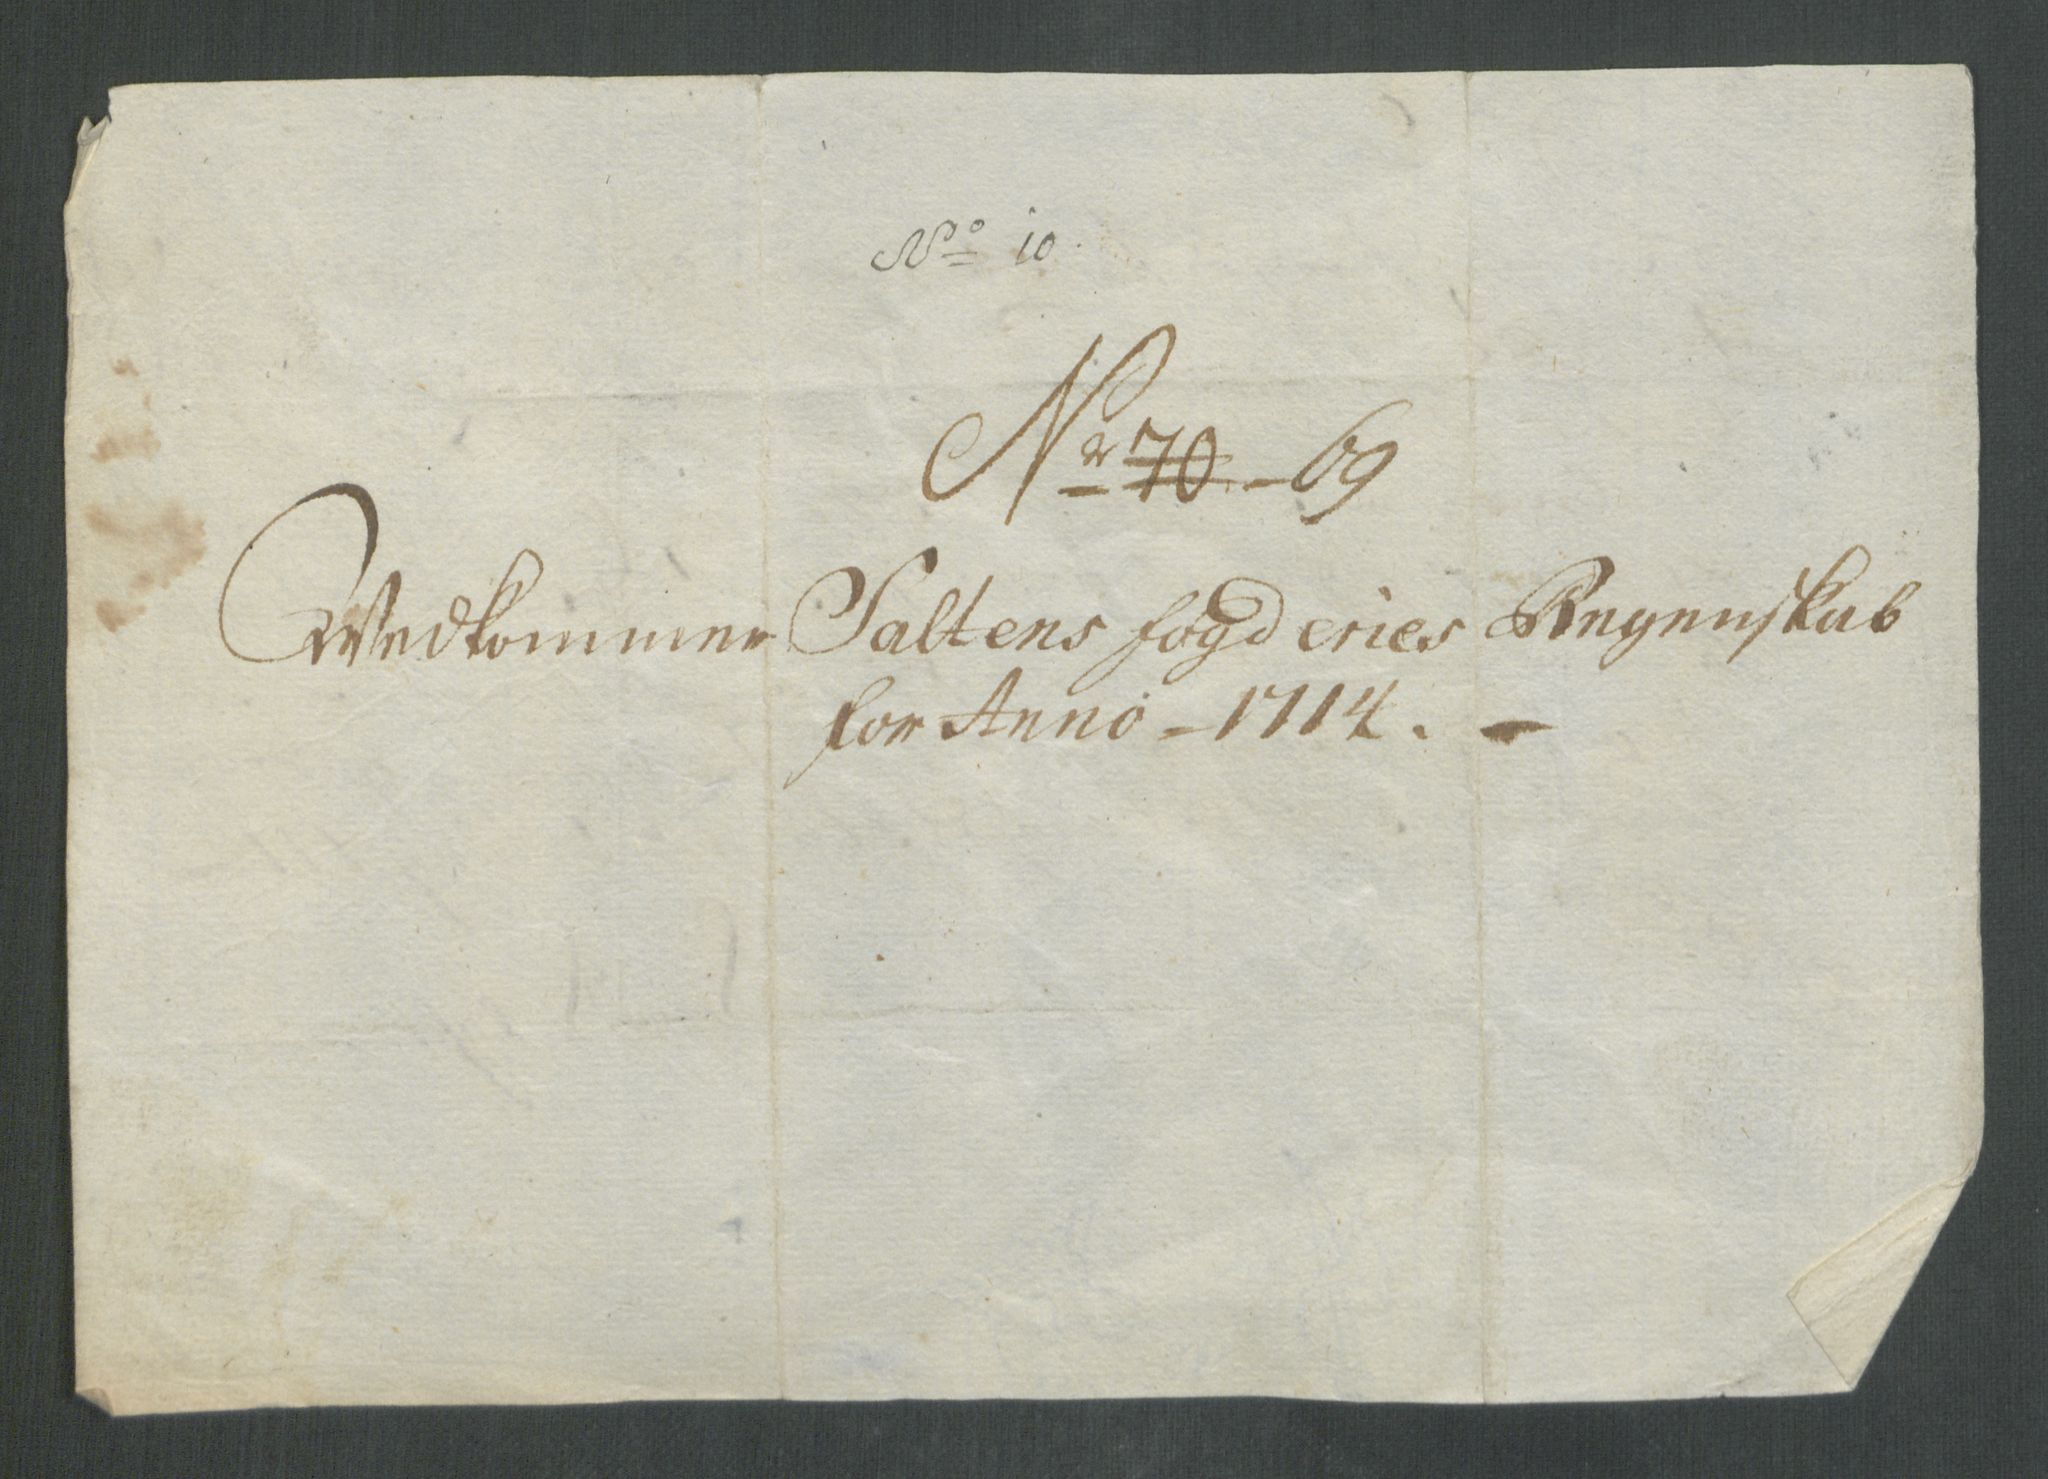 No 10.
Nr 70 - 69
Wedkommer Saltens fogderies Regenskab
for Anno - 1714. -